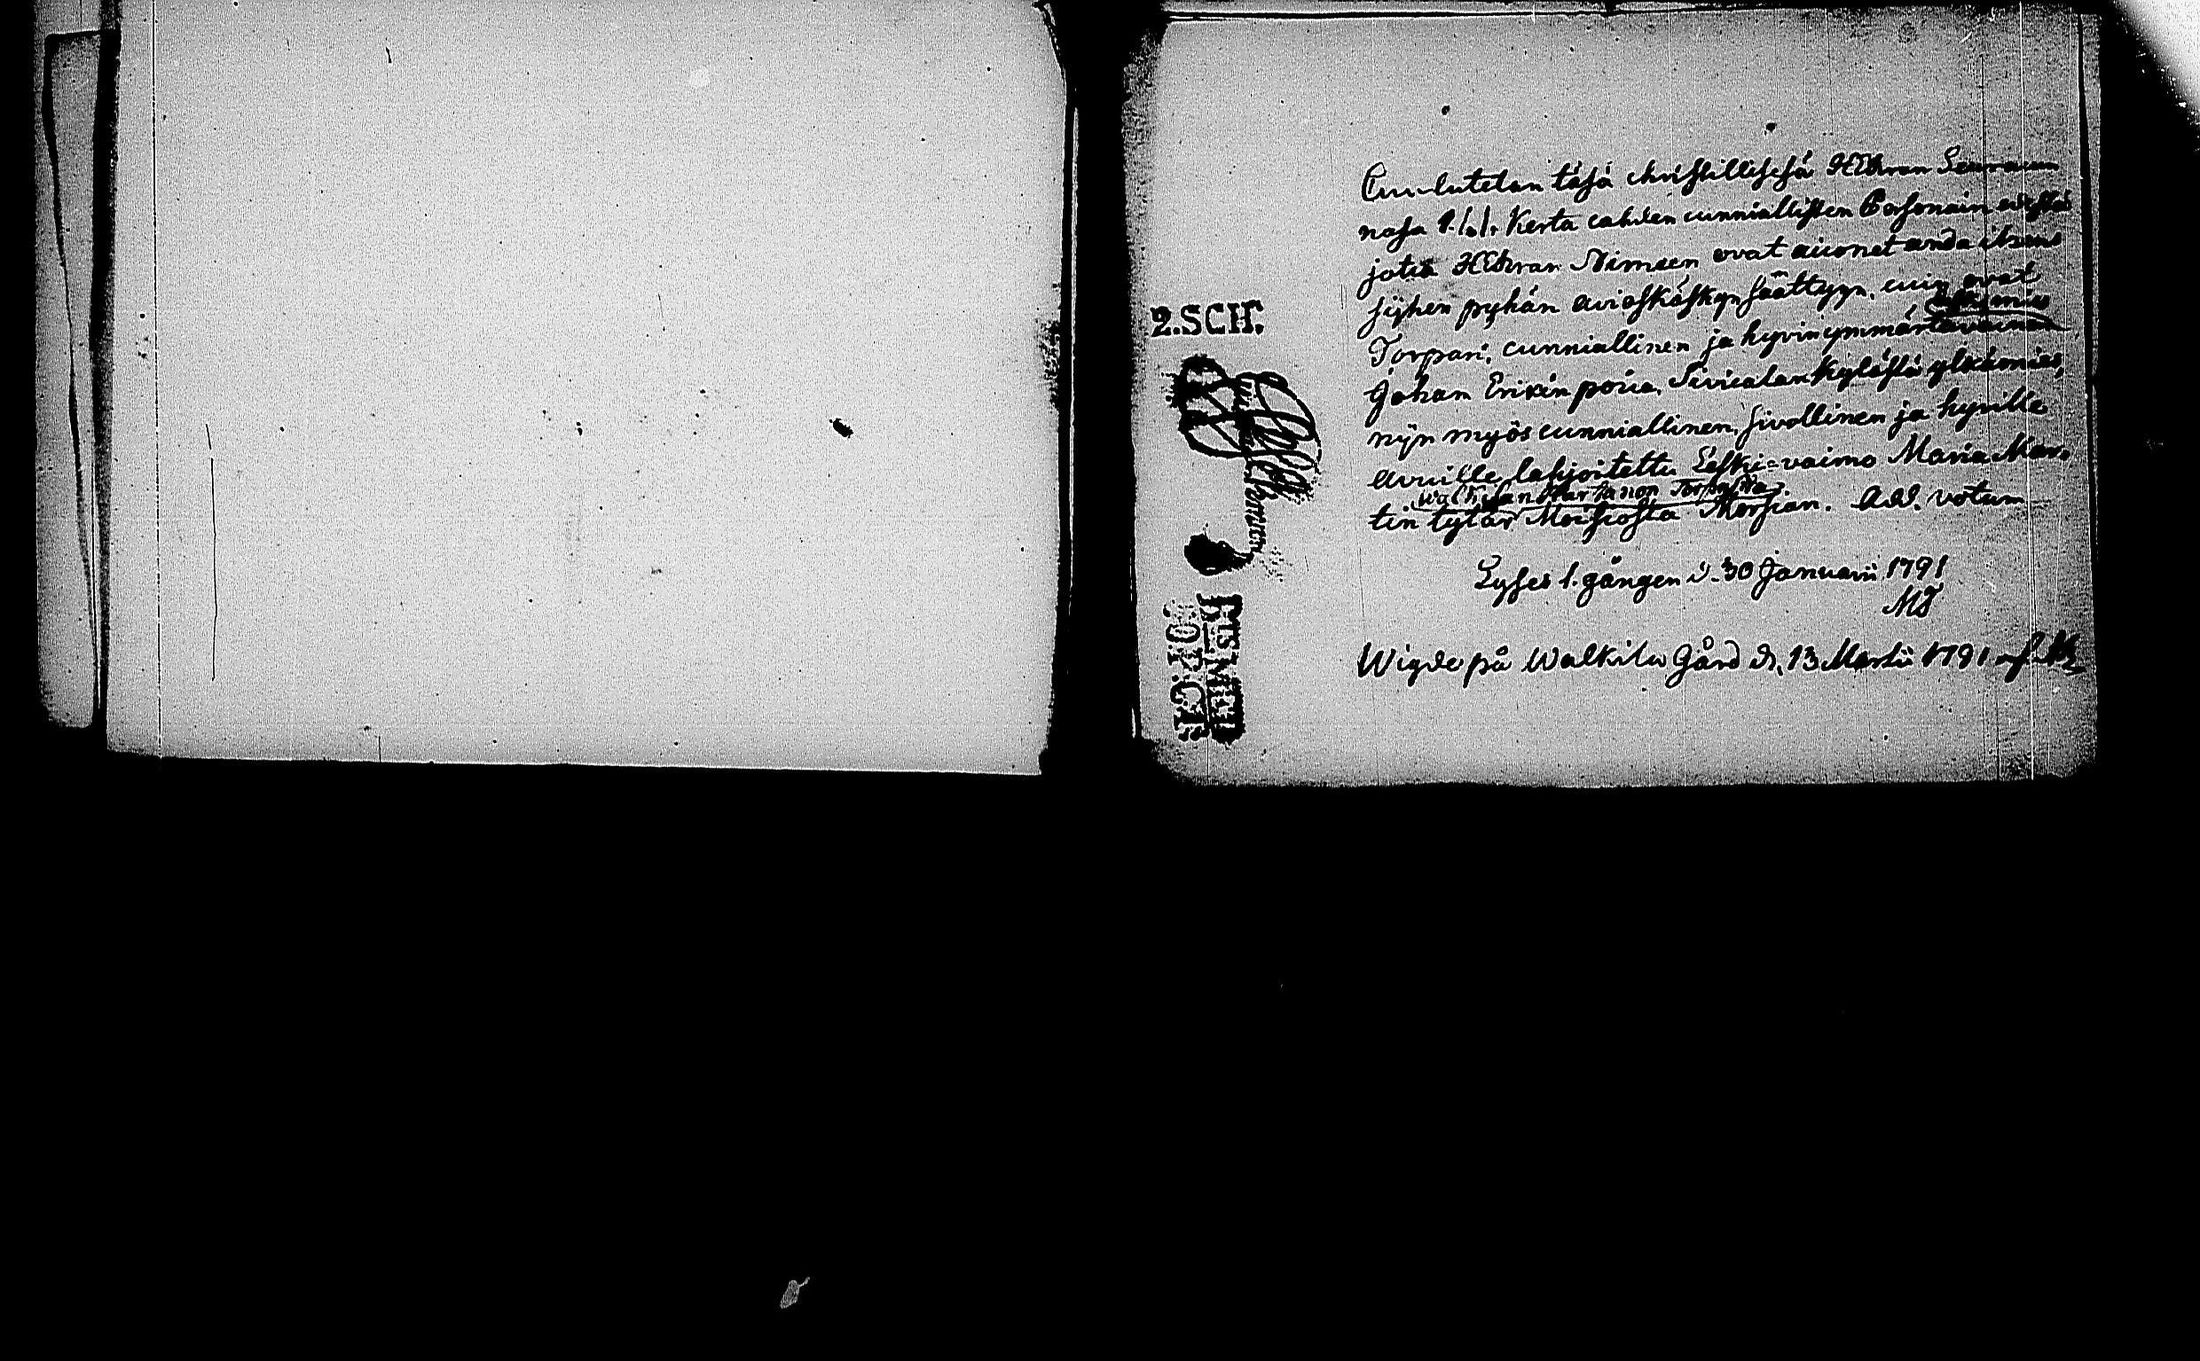 2.SCH.
Cuulutetan täsä christillisesä HERran Seuracun
nasa 1. Kerta cahden cunniallisen Personain
jotca HERran Nimeen ovat aiconet anda itzens
sijhen pyhän avioskäskyn säättyyn, cuin ovat
Torpari, cunniallinen ja hyvinymmärtäväinen
Johan Erikin poica, Kylästä ylkämies,
nijn myös cunniallinen, sivollinen ja hyville
avuille lahjoitettu Leski-vaimo Maria Mar-
Cartanon Torpasta
tin tytär Morsian. Add. votum
Lyses 1. gången d. 30 Januarii 1791
Wigde på Walkila Gård d. 13 Martii 1791